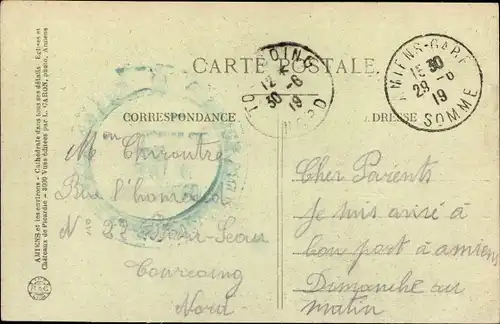 AMIENS et les environs - Cathédrale dans tous ses détails Eglises et
Châteaux de Picardie - 4000 Vues éditées par L. CARON, photo, Amiens
CARTE POSTALE
CORRESPONDANCE
ADRESSE
TOURCOING
12
30 -6
19
NORD
AMIENS-GARE
15 30
29 -6
19
SOMME
Mon
Rue
N 22
Tourcoing
Nord
Cher Parents
Je suis arivé à
bon port à amiens
Dimanche au
matin